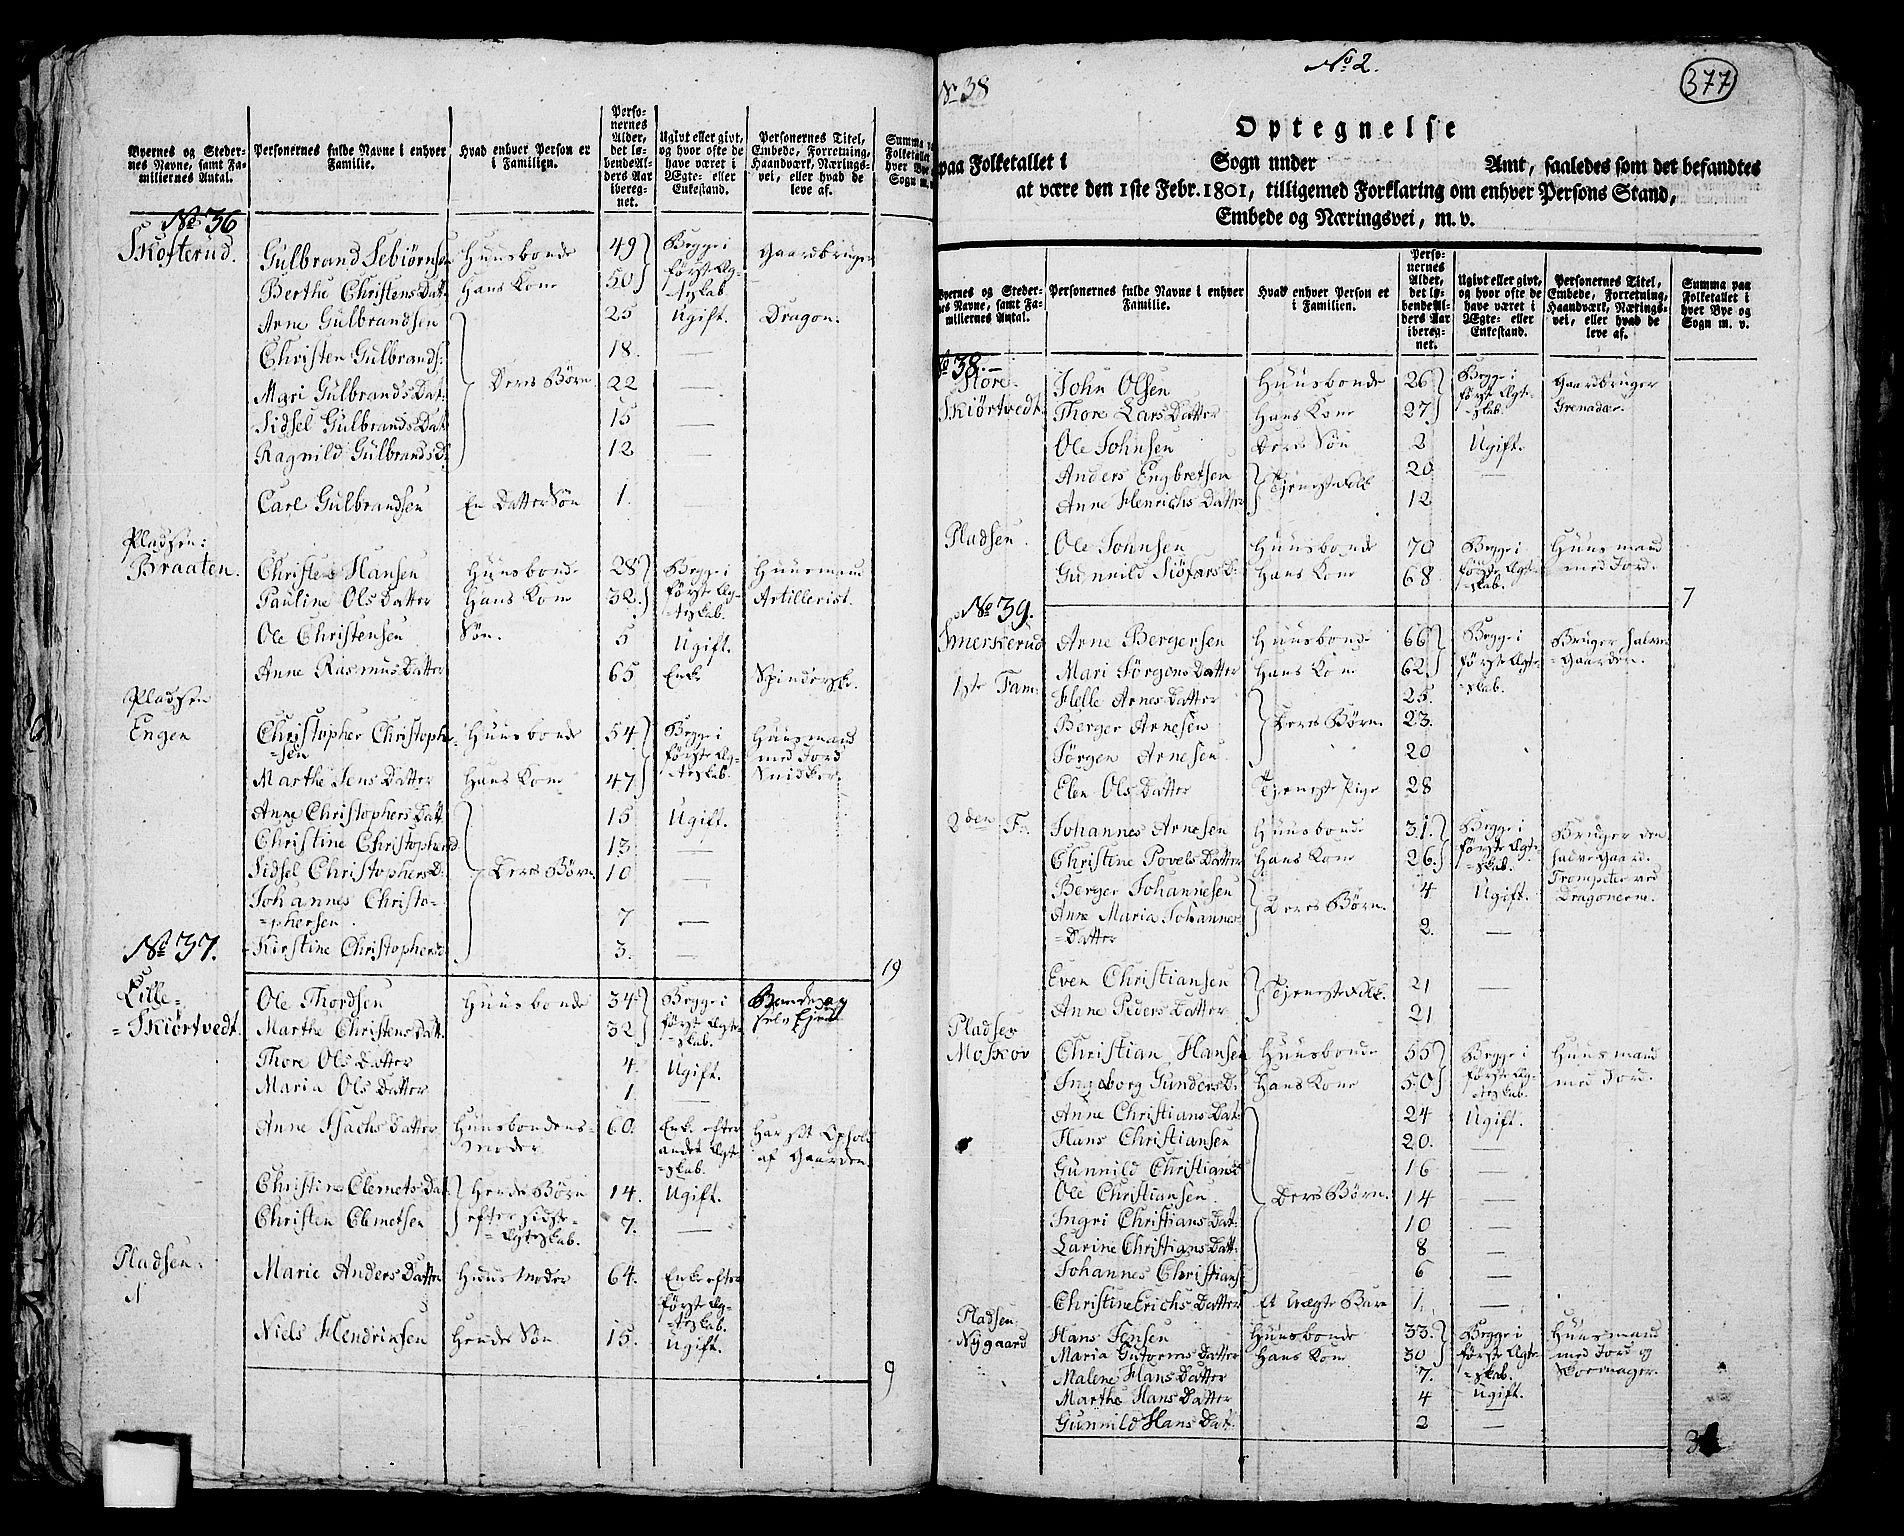 Byernes og Steder-
nes Navne, samt Fa-
miliernes Antal.
Personernes fulde Navne i enhver
Familie.
Hvad enhver Person er
i Familien.
Perso-
nernes
Alder,
det lø-
bende Al-
ders Aar
ibereg-
net.
Ugivt eller givt,
og hvor ofte de
have været i
Ægte- eller
Enkestand.
Personernes Titel,
Embede, Forretning,
Haandværk, Nærings-
vei, eller hvad de
leve af.
Summa paa
Folketallet
hver Bye
Sogn m. v.
No 36
Skofterud. Gulbrand Sebiørnsen Huusbonde 49 Begge i første Ægteskab Gaardbruger
Berthe Christens Datt. Hans Kone 50
Arne Gulbrandsen 25 Ugift. Dragon.
Christen Gulbrands: 18. —
Mari Gulbrands Dat: Deres Børn 22 —
Sidsel Gulbrands Dat. 15 —
Ragnild Gulbrandsd: 12 —
Carl Gulbrandsen En Datter Søn 1. —
Pladsen:
Braaten. Christen Hansen Huusbonde 28 Begge i første Ægteskab. Huusmand
Pauline Ols Datter Hans Kone 32. Artillerist.
Ole Christensen Søn. 5 Ugift.
Anne Rasmus Datter 65 Enke Spinderske.
Pladsen
Engen Christopher Christoph- Huusbonde 54 Begge i første Ægteskab. Huusmand
=sen med Jord
Marthe Jens Datter Hans Kone 47 Snidker.
Anne Christophers Dat. 15 Ugift.
Christine Christophersd 13. —
Sidsel Christophers D: Deres Børn. 10 —
Johannes Christo-
=phersen. 7 —
Kirstine Christophersd 3. —
19
No 37.
Lille=
=Skiørtvedt. Ole Thordsen Huusbonde 34 Begge i første Ægteskab. Bonde og
Marthe Christens Datt. 32 selv Ejer
Thore Ols Datter 4. Ugift.
Maria Ols Datter 1. —
Anne Isachs Datter Huusbondens= 60. Enke efter Har sit Ophold
Moder andet Ægte=skab. af Gaarden.
Christine Clemets Dat. Hendes Børn 14. Ugift.
Christen Clemetsen efter sidste Ægteskab. 7. —
Pladsen: Marie Anders Datter Huus Moder 64. Enke efter
første Ægteskab.
Niels Hendriksen Hendes Søn 15. Ugift.
9
No 38
No 2.
377
Optegnelse
paa Folketallet i Sogn under Amt, saaledes som det befandtes
at være den 1ste Febr. 1801, tilligemed Forklaring om enhver Persons Stand,
Embede og Næringsvei, m. v.
Byernes og Steder-
nes Navne, samt Fa-
miliernes Antal.
Personernes fulde Navne i enhver
Familie.
Hvad enhver Person er
i Familien.
Perso-
nernes
Alder,
det lø-
bende Al-
ders Aar
ibereg-
net.
Ugivt eller givt,
og hvor ofte de
have været i
Ægte- eller
Enkestand.
Personernes Titel,
Embede, Forretning,
Haandværk, Nærings-
vei, eller hvad de
leve af.
Summa paa
Folketallet i
hver Bye og
Sogn m. v.
No 38.
Store= John Olsen Huusbonde 26 Begge i første Ægte=skab. Gaardbruger
Skiørtvedt. Thore Lars Datter Hans Kone 27 Grenadær.
Ole Johnsen Deres Søn 2 Ugift.
Anders Engbretsen Tjenestefolk 20 —
Anne Henrichs Datter 12
Pladsen. Ole Johnsen Huusbonde 70 Begge i første Ægte=skab. Huusmand
Gunnild Siøfars D: Hans Kone 68. med Jord.
7
No 39.
Arne Bergersen Huusbonde 66 Begge i første Ægte=skab. Bruger halve
Mari Jørgens Datter Hans Kone 62 =Gaarden.
1ste Fam: Helle Arnes Datter 25.
Berger Arnesen Deres Børn. 23.
Jørgen Arnesen. 20
Elen Ols Datter Tjeneste Pige 28
2den F. Johannes Arnesen Huusbonde 31. Begge i første Ægte=skab. Bruger den
Christine Povels Datter Hans Kone 26. halve Gaard.
Berger Johannesen Deres Børn. 4 Ugift. Trompeter ved
Anne Maria Johannes= Dragonerne.
=Datter 2. —
Even Christiansen Tjenestefolk. 21 —
Anne Peders Datter 21
Pladsen
Moskov Christian Hansen Huusbonde 55 Begge i første Ægteskab. Huusmand
Ingeborg Gunders D: Hans Kone 50 med Jord.
Anne Christians Dat: 24 Ugift.
Hans Christiansen 20. —
Gunnild Christiansd 16 —
Ole Christiansen. Deres Børn. 14 —
Ingri Christians Dat: 10 —
Larine Christians Datt: 8 —
Johannes Christians: 6 —
Christine Erichs Datter Et Uægte Barn 1. —
Pladsen
Nygaard Hans Jensen Huusbonde 33. Begge i første Ægte=skab. Huusmand
Maria Gutorms Datter Hans Kone 30 med Jord og
Malene Hans Datter 7. Skoemager.
Marthe Hans Datter 4 Ugift.
Gunnild Hans Dat: 2 —